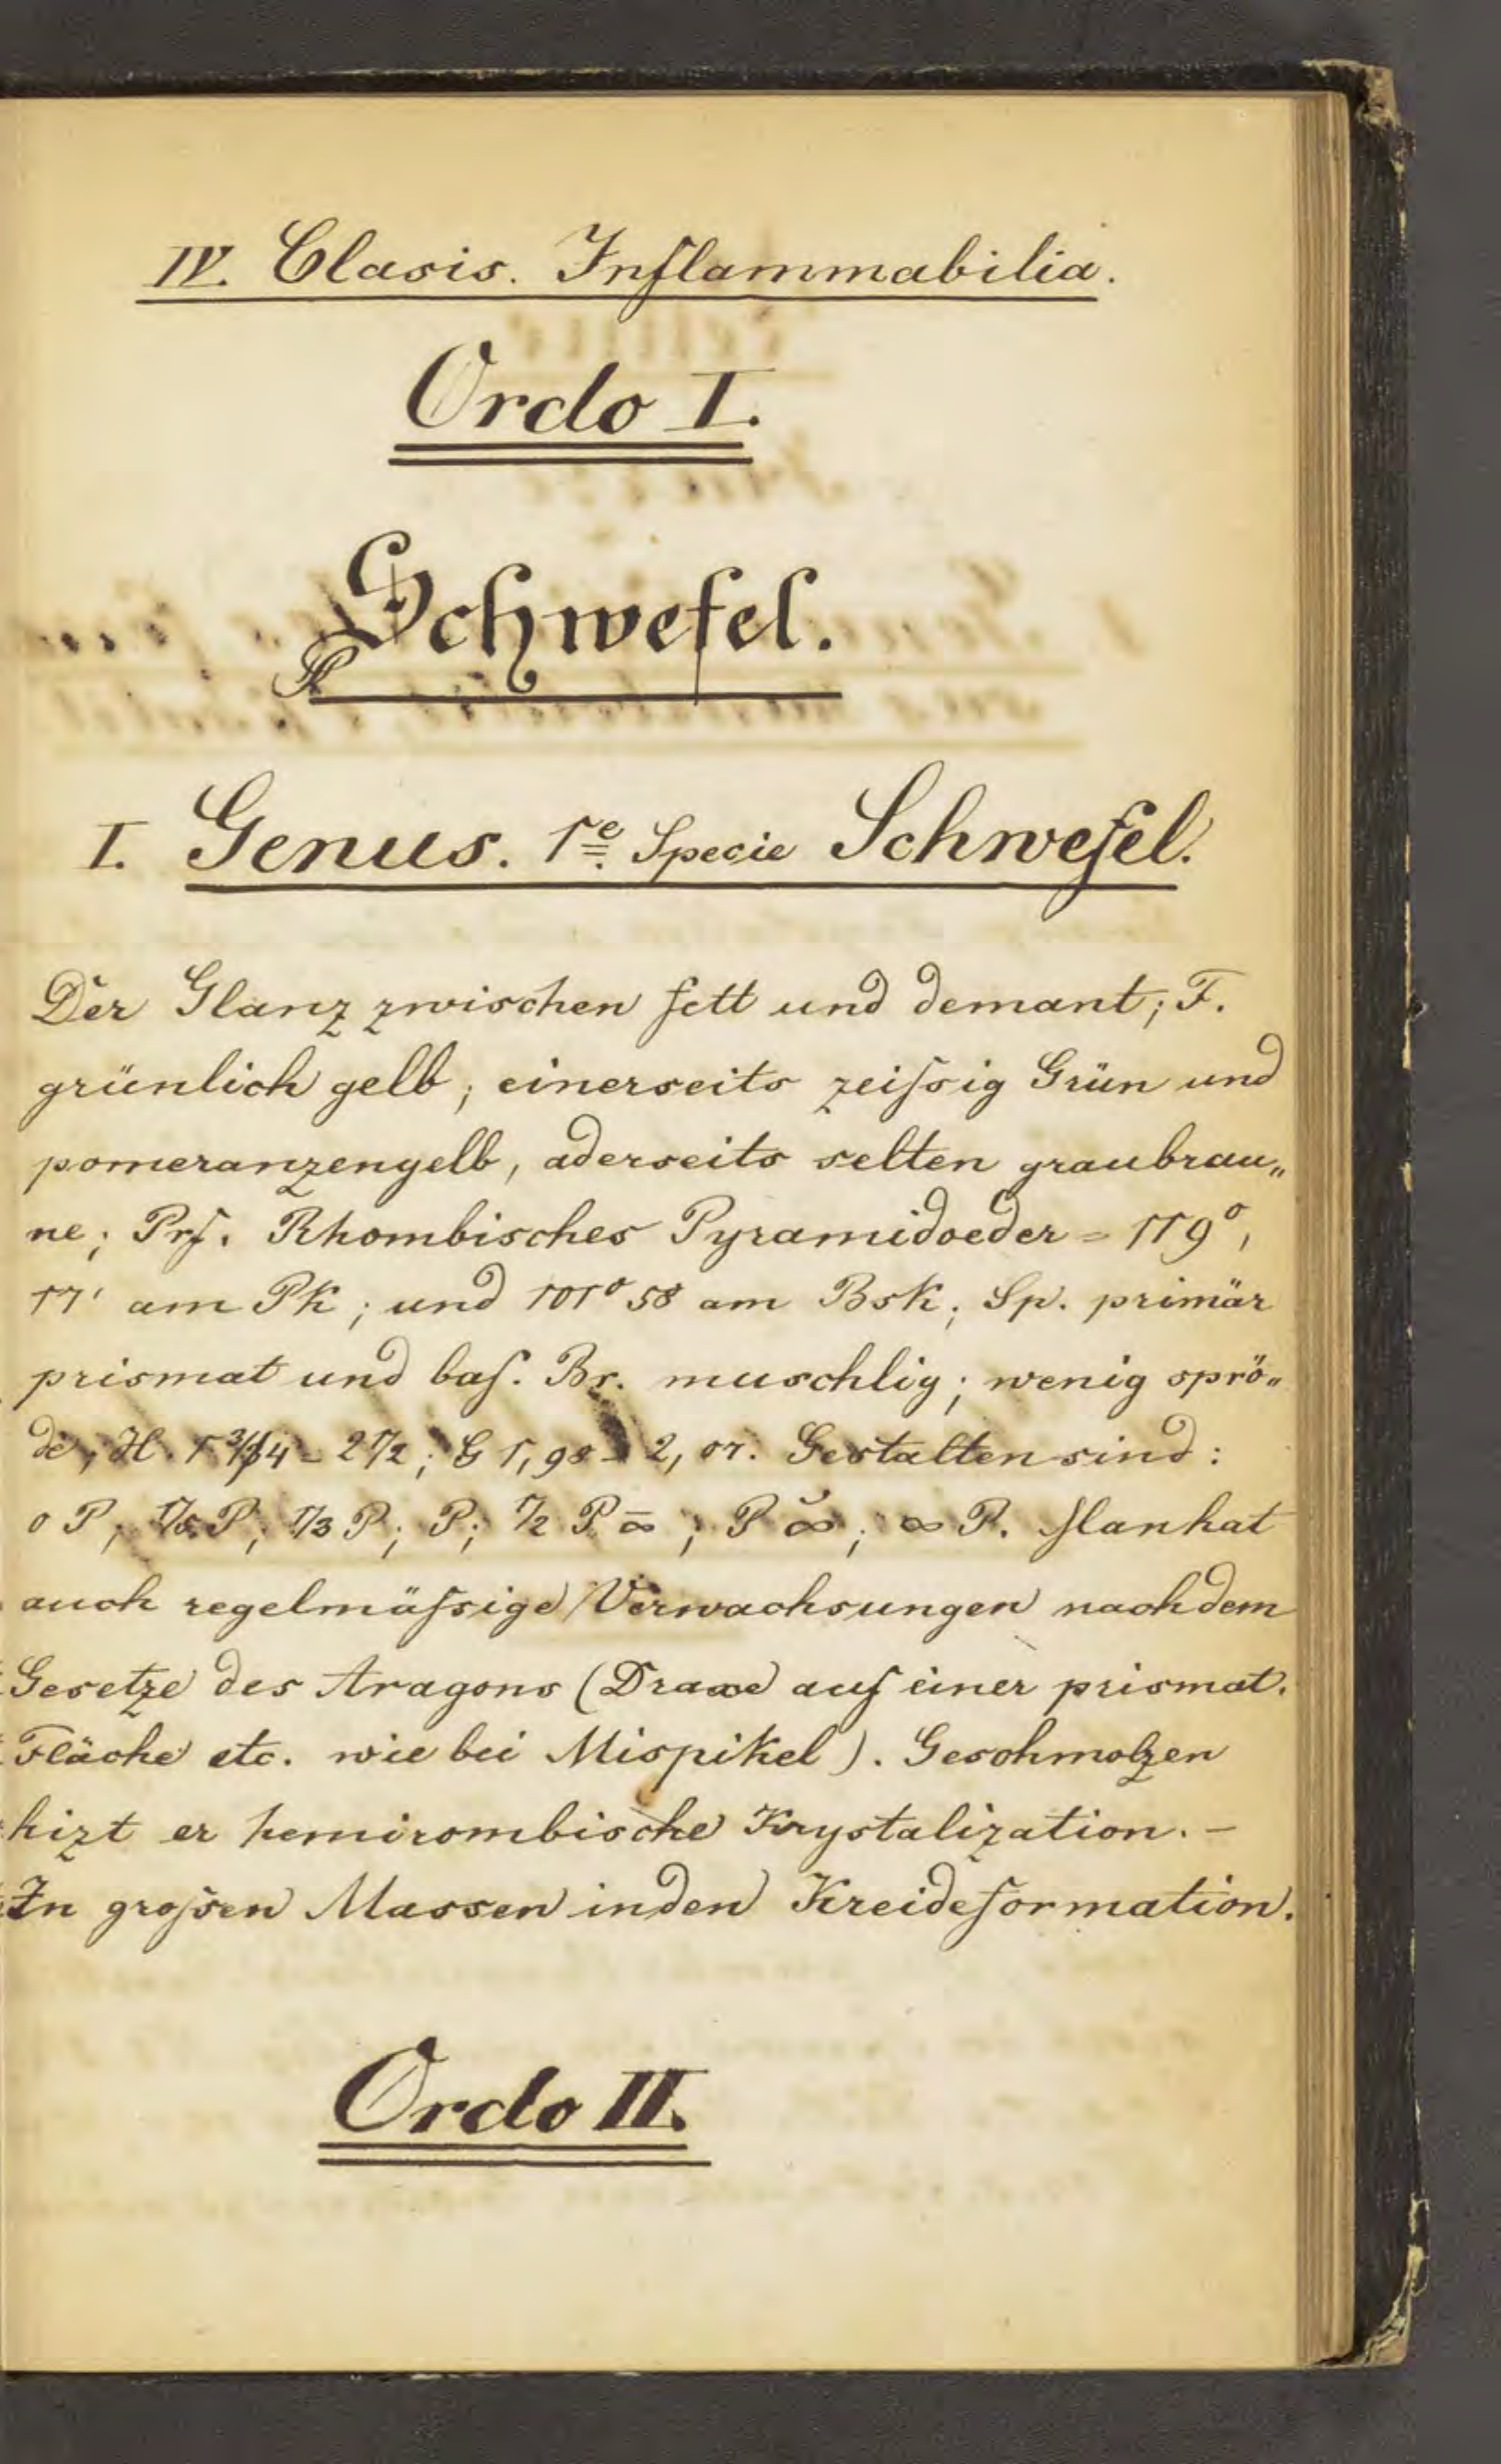 IV. Classis. Inflammabilia.
Ordo I.
Schwefel.
I. Genus. 1e. Specie Schwefel.
Der Glanz zwischen fett und demant; F.
grünlich gelb; einerseits zeiſsig Grün und
pomeranzengelb, aderseits selten graubrau„
ne; Prf. Rhombisches Pyramidoeder = 119°,
17' am Pk; und 101° 58 am Bsk; Sp. primär
prismat und baſ. Br. muschlig; wenig sprö„
de; H. 1 3/4 - 2 1/2; G 1,98 - 2,07. Gestalten sind:
0 P; 1/5 P; 1/3 P; P; 1/2 P ∞̄; P ∞̆; ∞ P. Man hat
auch regelmäſsige Verwachsungen nach dem
Gesetze des Aragons (Draxe auf einer prismat.
Fläche etc. wie bei Mispikel). Geschmolzen
hizt er hemirombische Krystalization. –
In groſsen Massen in den Kreideformation.
Ordo II.